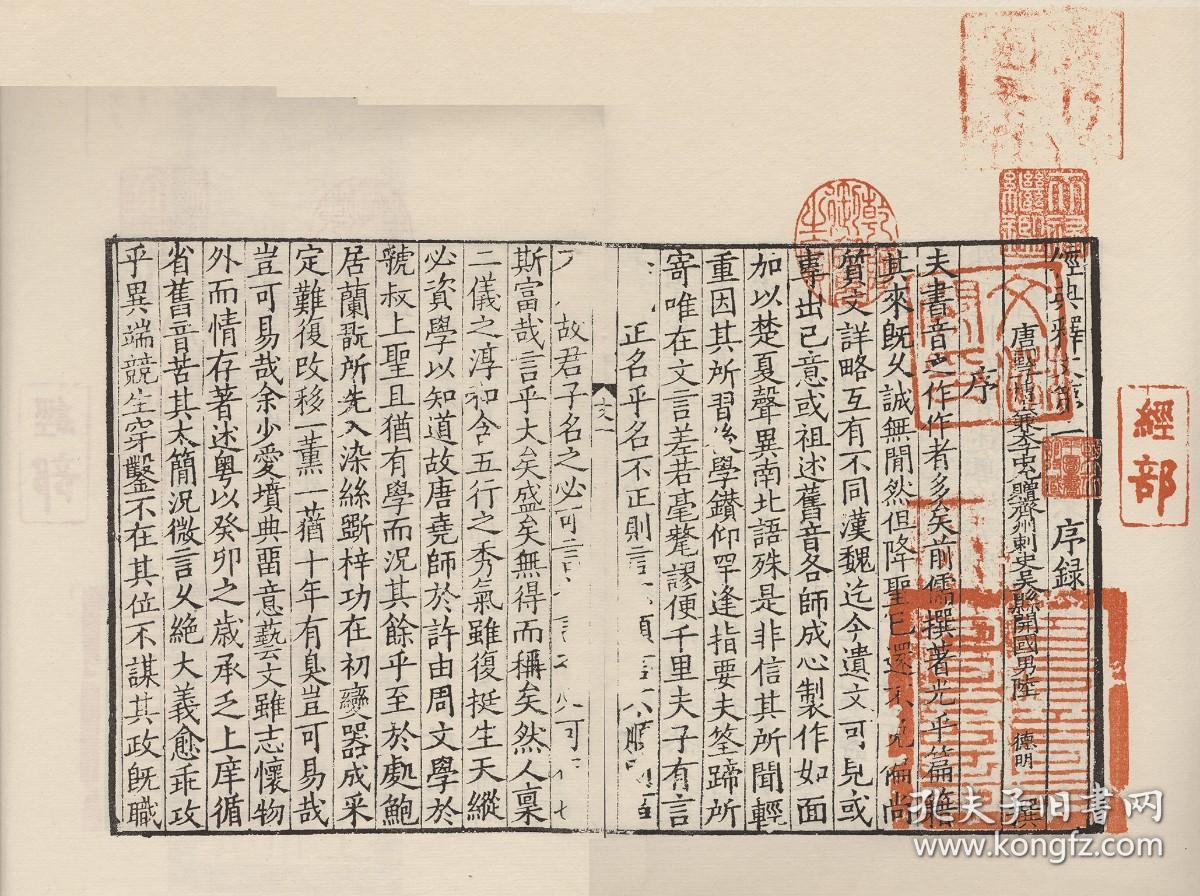 經典釋文第一 序錄
唐國子博士兼太子中允贈齊州刺史吳縣開國男陸 德明 撰
序
夫書音之作作者多矣前儒撰著光乎篇籍
其來旣久誠無閒然但降聖已還不免偏尚
質文詳略互有不同漢魏迄今遺文可見或
專出己意或祖述舊音各師成心製作如面
加以楚夏聲異南北語殊是非信其所聞輕
重因其所習後學鑽仰罕逢指要夫筌蹄所
寄唯在文言差若毫釐謬便千里夫子有言
正名乎名不正則言 順言 順
故君子名之必可言 可
斯富哉言乎大矣盛矣無得而稱矣然人稟
二儀之淳和含五行之秀氣雖復挺生天縱
必資學以知道故唐堯師於許由周文學於
虢叔上聖且猶有學而況其餘乎至於處鮑
居蘭翫所先入染絲斲梓功在初變器成采
定難復改移一薰一蕕十年有臭豈可易哉
豈可易哉余少愛墳典留意藝文雖志懷物
外而情存著述粵以癸卯之歲承乏上庠循
省舊音苦其太簡況微言久絶大義愈乖攻
乎異端競生穿鑿不在其位不謀其政旣職
經部
孔夫子旧書网
www.kongfz.com